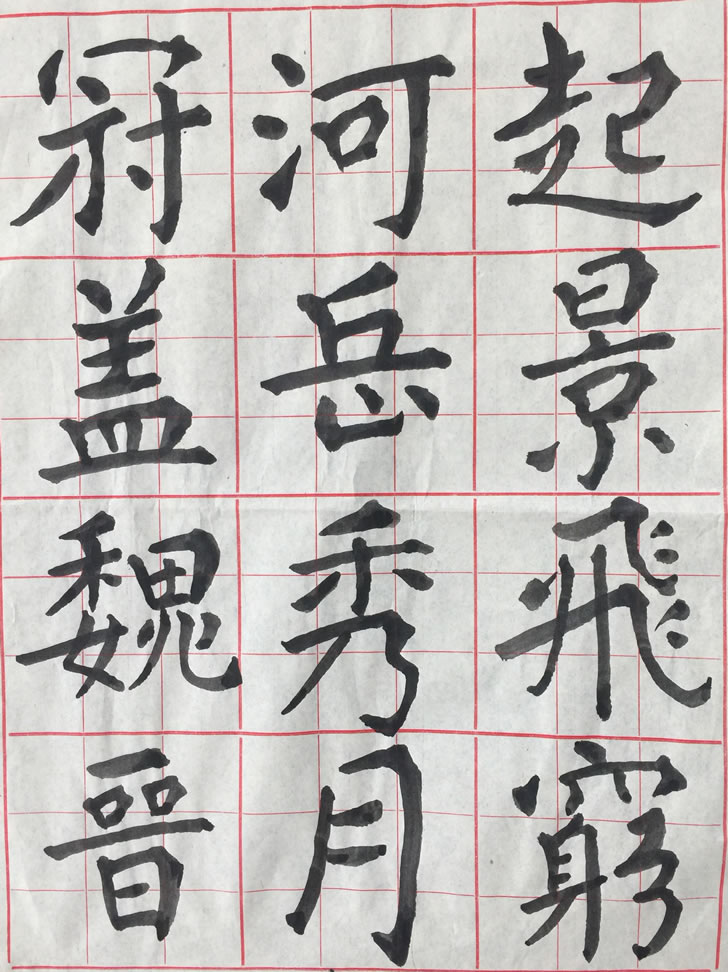 起景飛窮
河岳秀月
冠盖魏晉